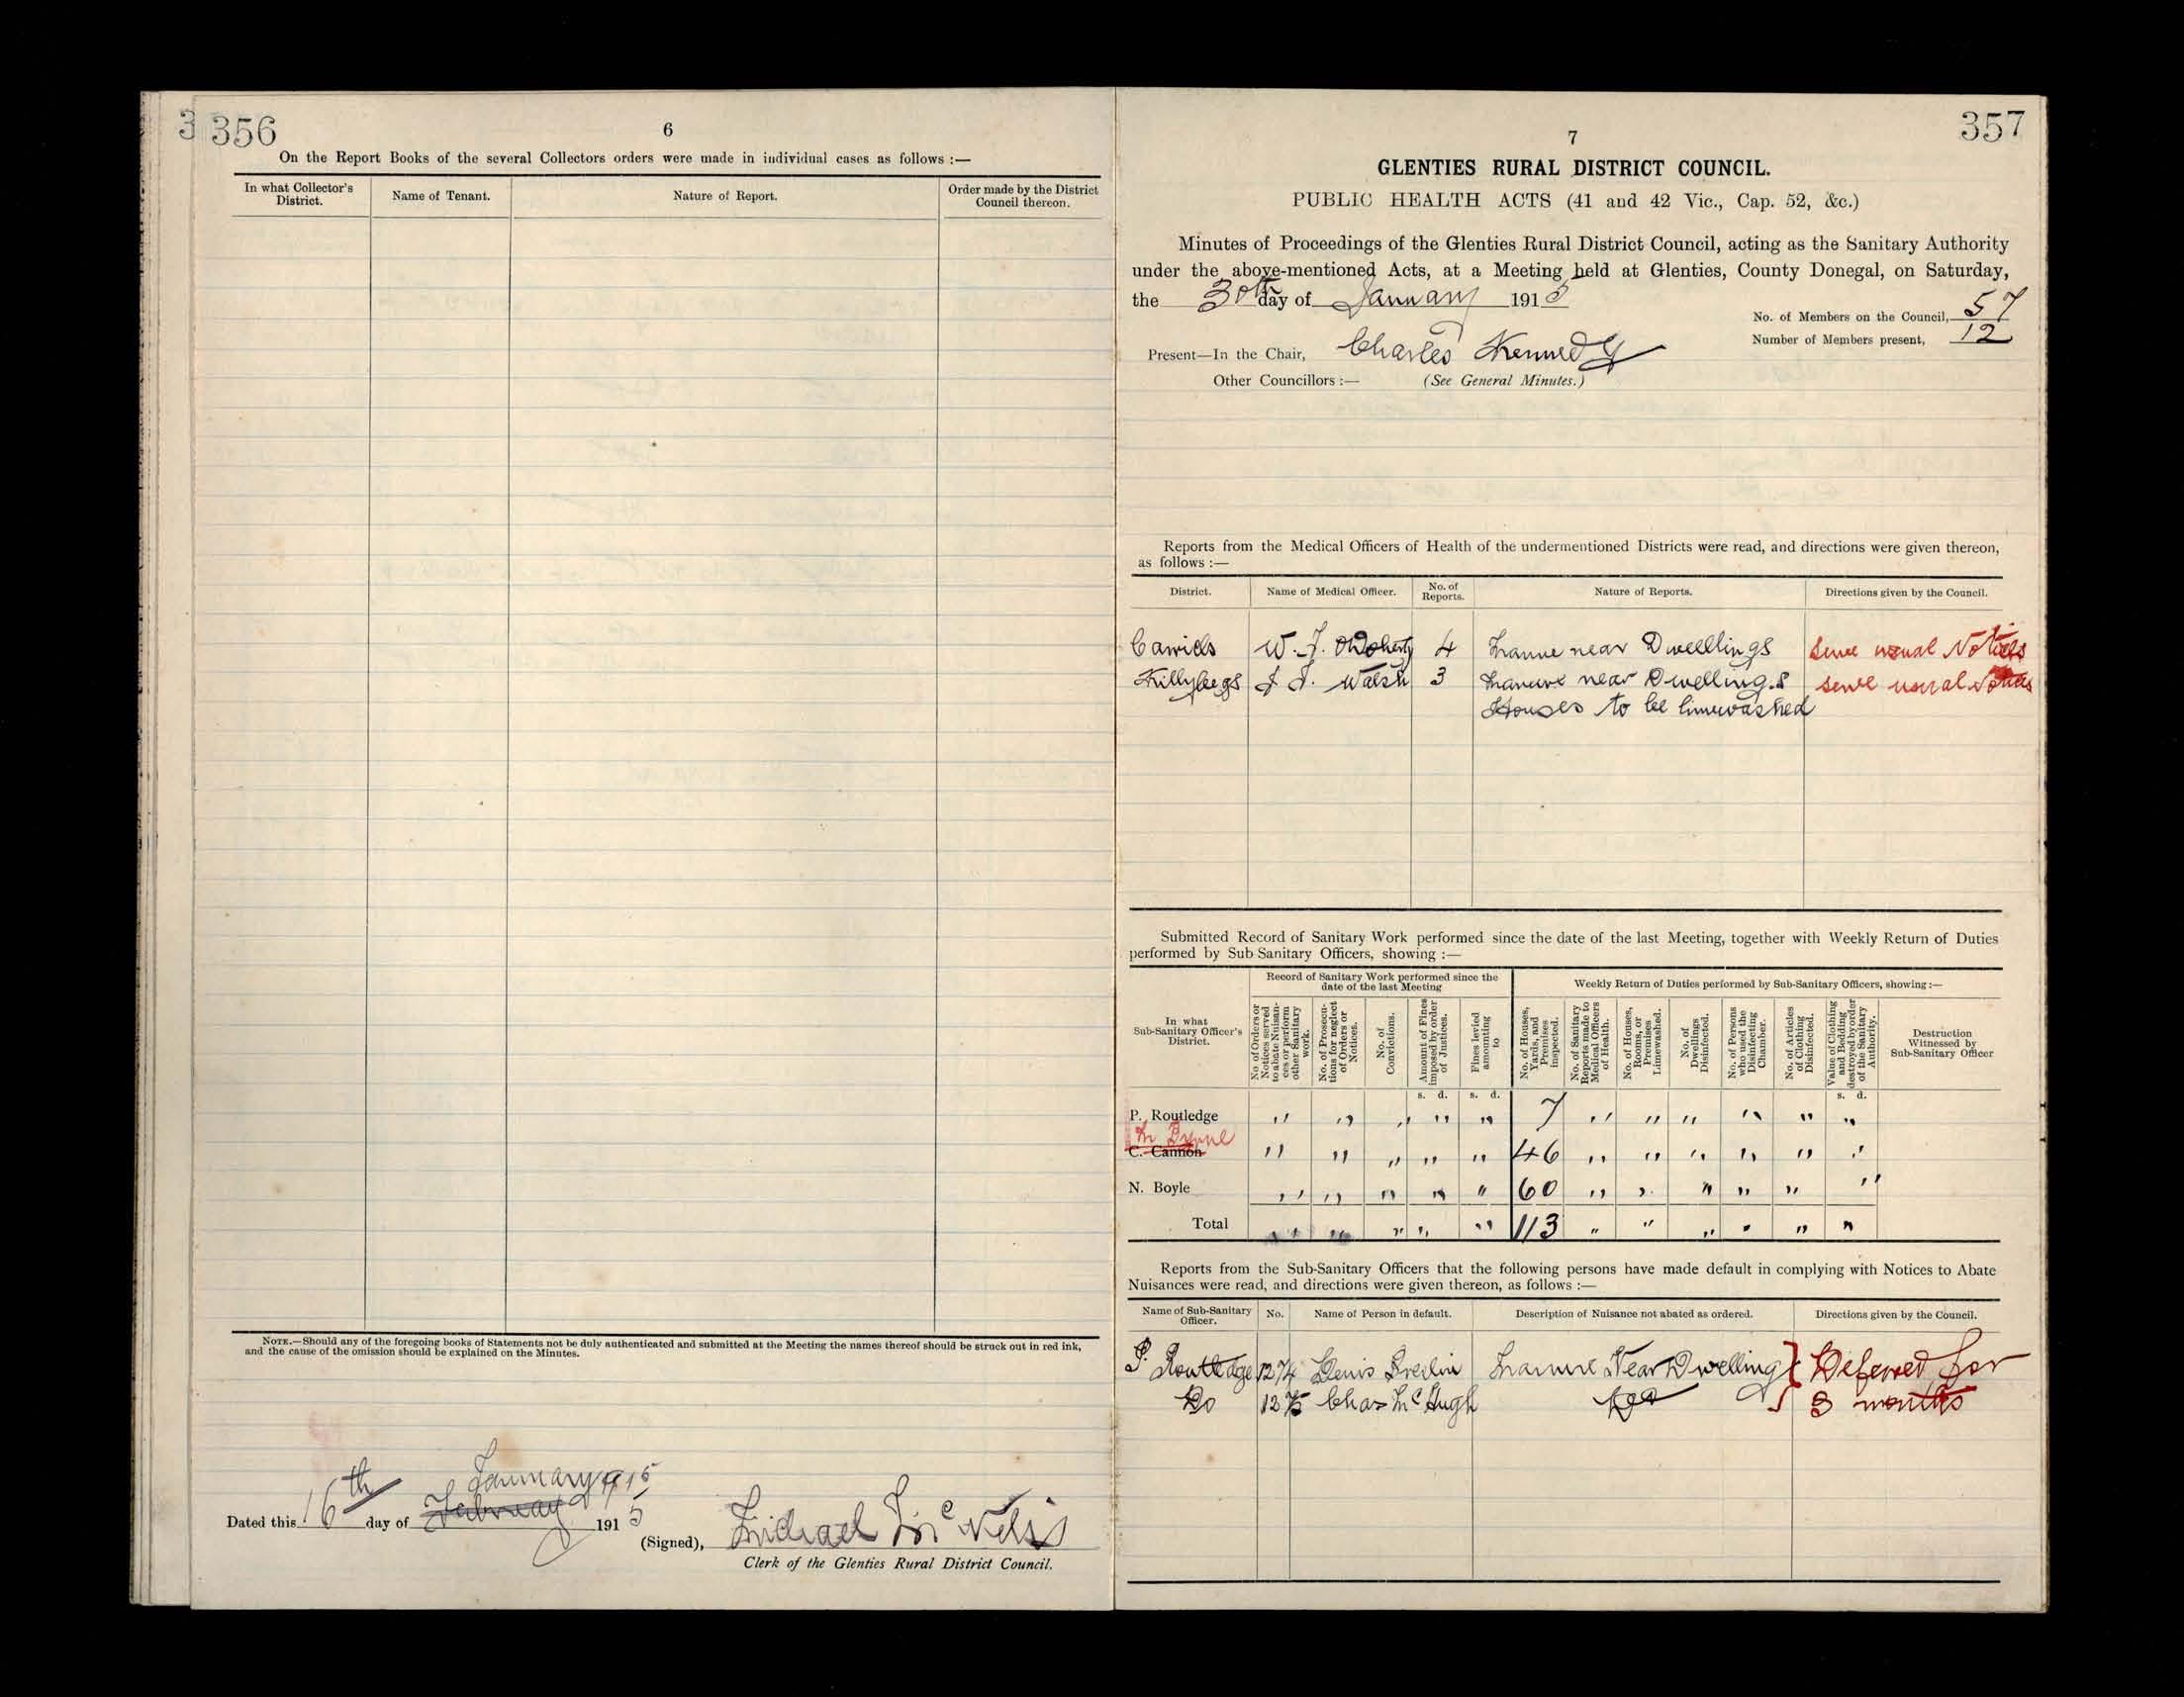 3 356
6
On the Report Books of the several Collectors orders were made in individual cases as follows :—
In what Collector's District.
Name of Tenant.
Nature of Report.
Order made by the District Council thereon.
NOTE.—Should any of the foregoing books of Statements not be duly authenticated and submitted at the Meeting the names thereof should be struck out in red ink,
and the cause of the omission should be explained on the Minutes.
January 1915
Dated this 16th day of February 1915
(Signed), Michael McNelis
Clerk of the Glenties Rural District Council.
357
7
GLENTIES RURAL DISTRICT COUNCIL.
PUBLIC HEALTH ACTS (41 and 42 Vic., Cap. 52, &c.)
Minutes of Proceedings of the Glenties Rural District Council, acting as the Sanitary Authority
under the above-mentioned Acts, at a Meeting held at Glenties, County Donegal, on Saturday,
the 30th day of January 1915
No. of Members on the Council, 57
Number of Members present, 12
Present—In the Chair, Charles Kennedy
Other Councillors :— (See General Minutes.)
Reports from the Medical Officers of Health of the undermentioned Districts were read, and directions were given thereon,
as follows :—
District.
Name of Medical Officer.
No. of Reports.
Nature of Reports.
Directions given by the Council.
W. J. O'Doherty 4 near Dwelllings Serve usual Notices
Killybegs J. J. Walsh 3 Manure near Dwellings Serve usual Notices
Houses to be limewashed
Submitted Record of Sanitary Work performed since the date of the last Meeting, together with Weekly Return of Duties
performed by Sub-Sanitary Officers, showing :—
In what Sub-Sanitary Officer's District.
Record of Sanitary Work performed since the date of the last Meeting
Weekly Return of Duties performed by Sub-Sanitary Officers, showing :—
No of Orders or Notices served to abate Nuisances or perform other Sanitary work.
No. of Prosecutions for neglect of Orders or Notices.
No. of Convictions.
Amount of Fines imposed by order of Justices.
Fines levied amounting to
No. of Houses, Yards, and Premises inspected.
No. of Sanitary Reports made to Medical Officers of Health.
No. of Houses, Rooms, or Premises Limewashed.
No. of Dwellings Disinfected.
No. of Persons who used the Disinfecting Chamber.
No. of Articles of Clothing Disinfected.
Value of Clothing and Bedding destroyed by order of the Sanitary Authority.
Destruction Witnessed by Sub-Sanitary Officer
s. d. s. d. s. d.
P. Routledge " " " " " 7 " " " " " "
Byrne
C. Cannon " " " " " 46 " " " " " "
N. Boyle " " " " " 60 " " " " " "
Total " " " " " 113 " " " " " "
Reports from the Sub-Sanitary Officers that the following persons have made default in complying with Notices to Abate
Nuisances were read, and directions were given thereon, as follows :—
Name of Sub-Sanitary Officer.
No.
Name of Person in default.
Description of Nuisance not abated as ordered.
Directions given by the Council.
P. Routledge 1274 Denis Breslin Manure Near Dwelling } Deferred for
Do 1275 Chas McHugh Do 3 months